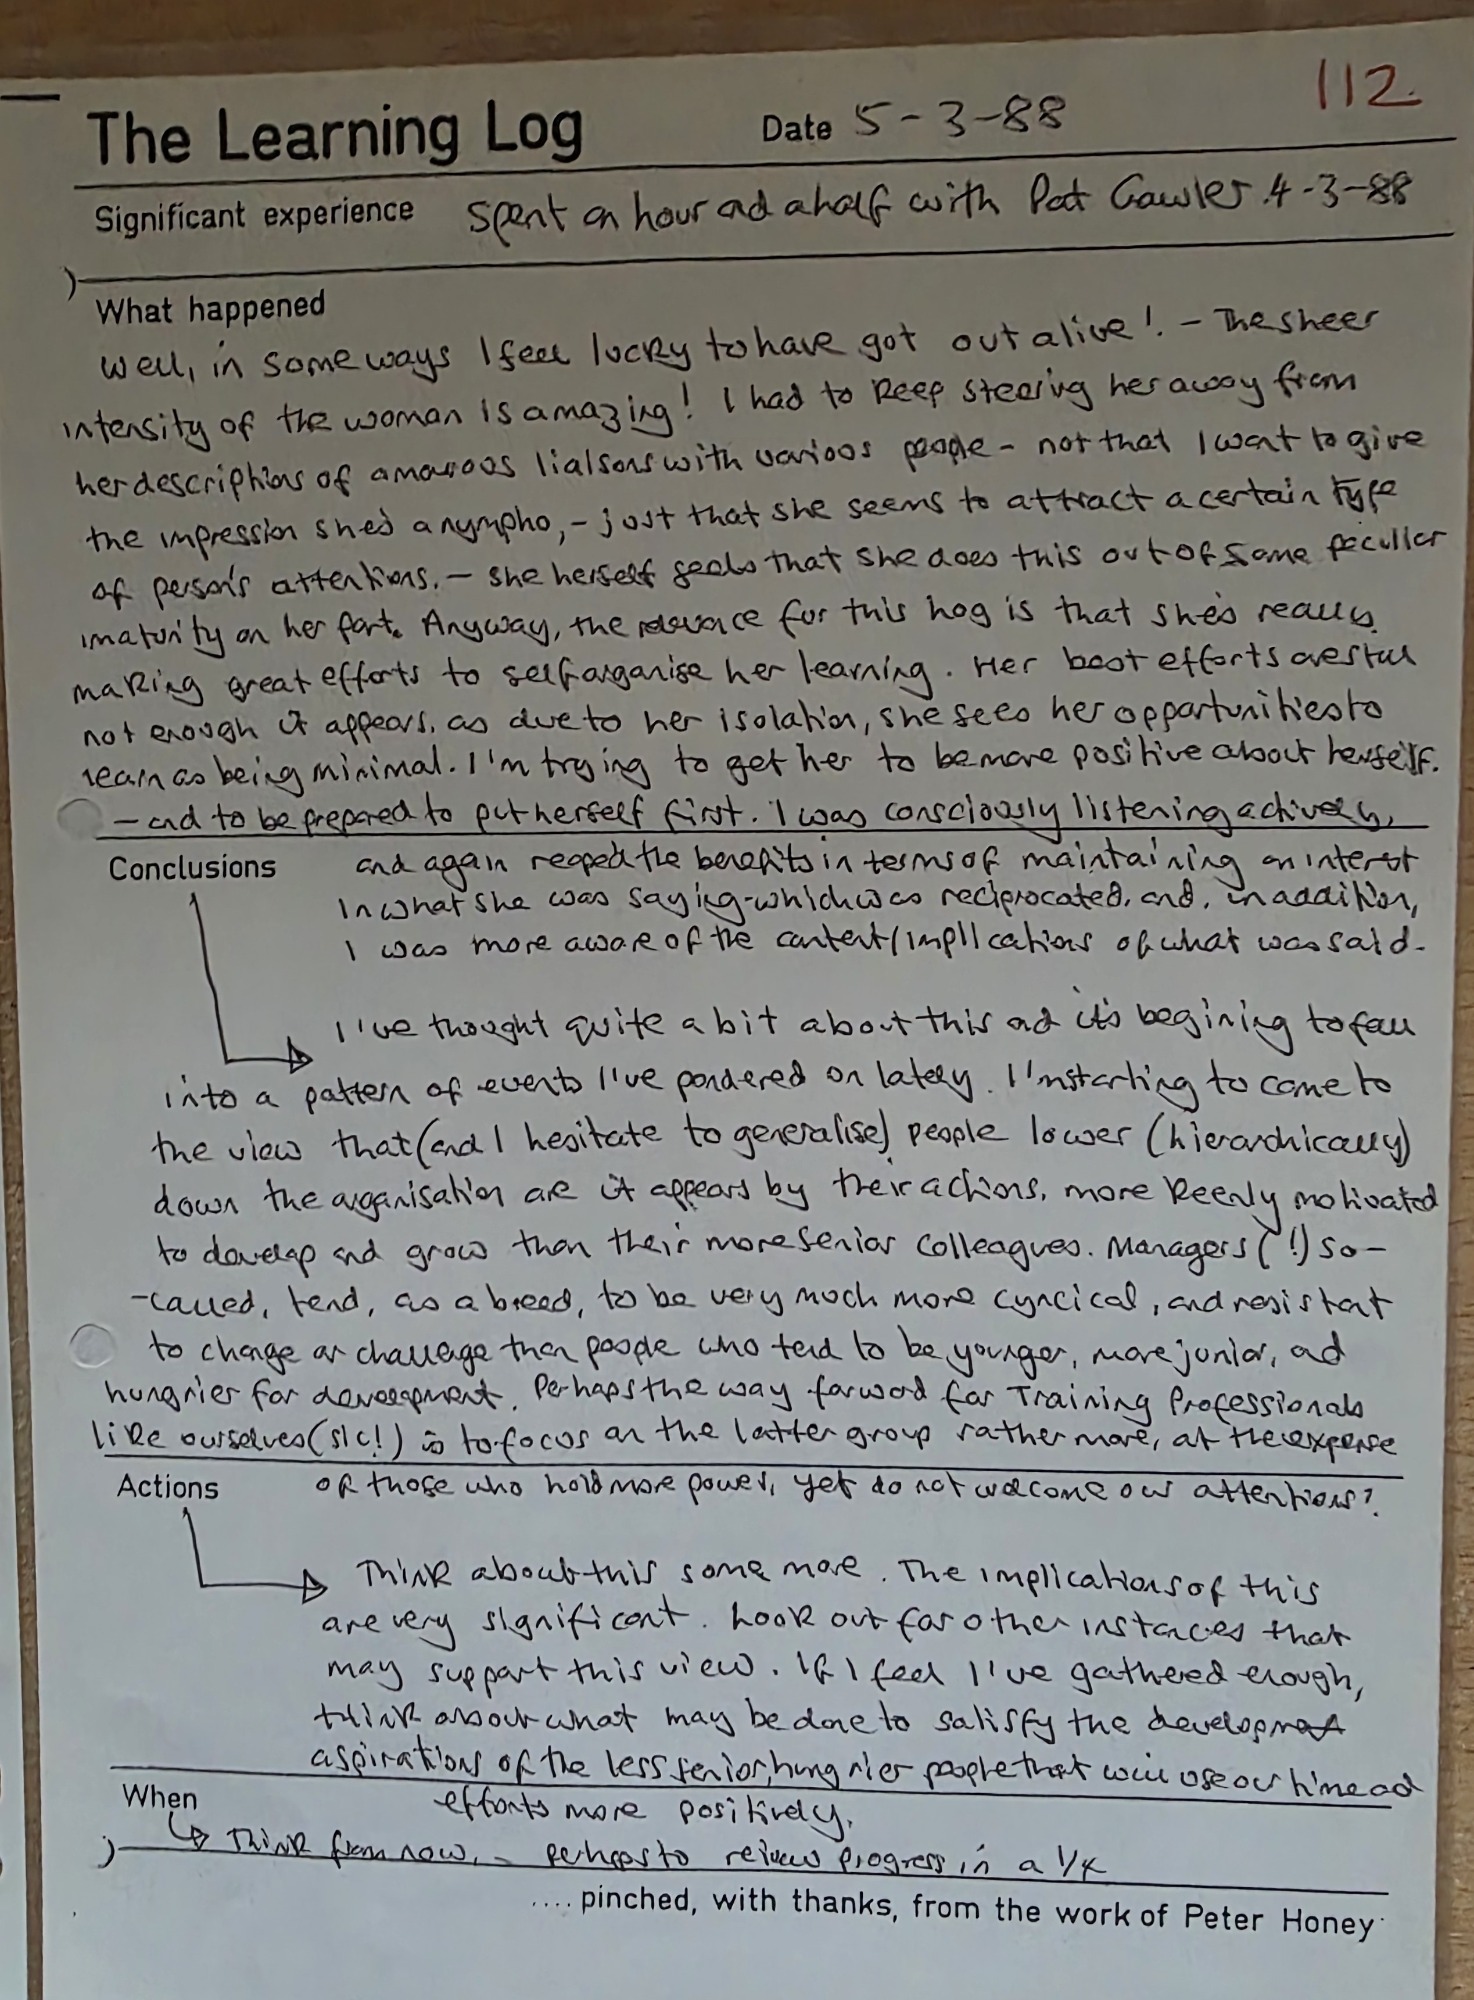 112.
The Learning Log Date 5-3-88
Significant experience Spent an hour and a half with Pat Gawler. 4-3-88
What happened
Well, in some ways I feel lucky to have got out alive! - The sheer
intensity of the woman is amazing! I had to keep steering her away from
her descriptions of amorous liaisons with various people - not that I want to give
the impression she's a nympho, - just that she seems to attract a certain type
of person's attentions. - she herself feels that she does this out of some peculiar
imaturity on her part. Anyway, the relevance for this log is that she's really
making great efforts to self organise her learning. Her best efforts are still
not enough it appears, as due to her isolation, she sees her opportunities to
learn as being minimal. I'm trying to get her to be more positive about herself.
- and to be prepared to put herself first. I was consciously listening actively,
Conclusions and again reaped the benefits in terms of maintaining an interest
in what she was saying - which was reciprocated, and, in addition,
I was more aware of the content/implications of what was said -
I've thought quite a bit about this and it's begining to fall
into a pattern of events I've pondered on lately. I'm starting to come to
the view that (and I hesitate to generalise) people lower (hierarchically)
down the organisation are it appears by their actions, more keenly motivated
to develop and grow than their more senior colleagues. Managers (!) so-
-called, tend, as a breed, to be very much more cyncical, and resistant
to change or challenge than people who tend to be younger, more junior, and
hungrier for development. Perhaps the way forward for Training Professionals
like ourselves (sic!) is to focus on the latter group rather more, at the expense
Actions of those who hold more power, yet do not welcome our attentions?
Think about this some more. The implications of this
are very significant. Look out for other instances that
may support this view. If I feel I've gathered enough,
think about what may be done to satisfy the development
aspirations of the less senior, hungrier people that will use our time and
When efforts more positively.
Think from now, - perhaps to review progress in a 1/4
.... pinched, with thanks, from the work of Peter Honey